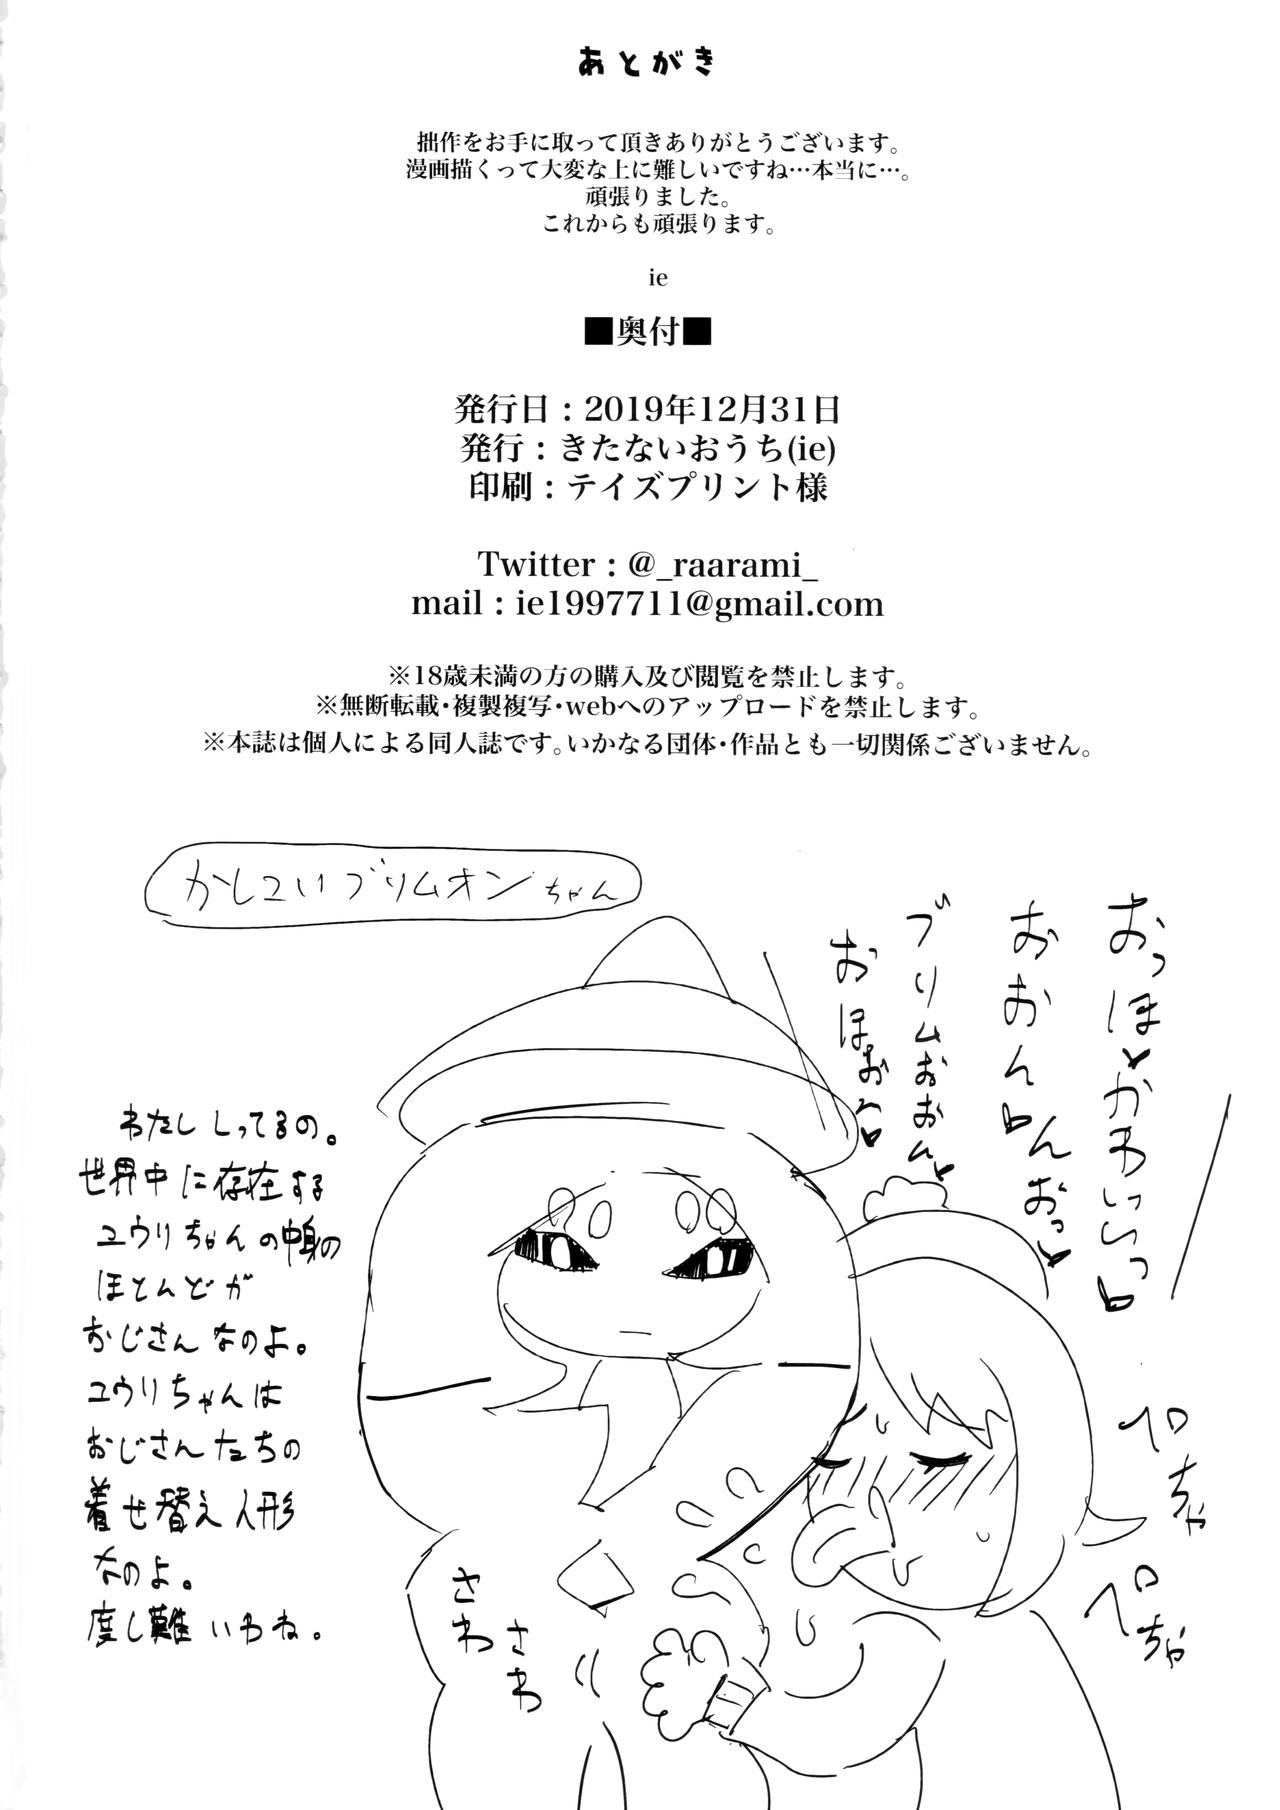 あとがき
拙作をお手に取って頂きありがとうございます。
漫画描くって大変な上に難しいですね…本当に…。
頑張りました。
これからも頑張ります。
ie
■奥付■
発行日：2019年12月31日
発行：きたないおうち(ie)
印刷：テイズプリント様
Twitter：@_raarami_
mail：ie1997711@gmail.com
※18歳未満の方の購入及び閲覧を禁止します。
※無断転載・複製複写・webへのアップロードを禁止します。
※本誌は個人による同人誌です。いかなる団体・作品とも一切関係ございません。
かしこいブリムオンちゃん
おっほ♥かわいいっ♥
おおん♥んおっ♥
ブリムおおん♥
おほお〜♥
わたししってるの。
世界中に存在する
ユウリちゃんの中身の
ほとんどが
おじさんなのよ。
ユウリちゃんは
おじさんたちの
着せ替え人形
なのよ。
度し難いわね。
ペロちゃ
ペロちゃ
さわ
さわ